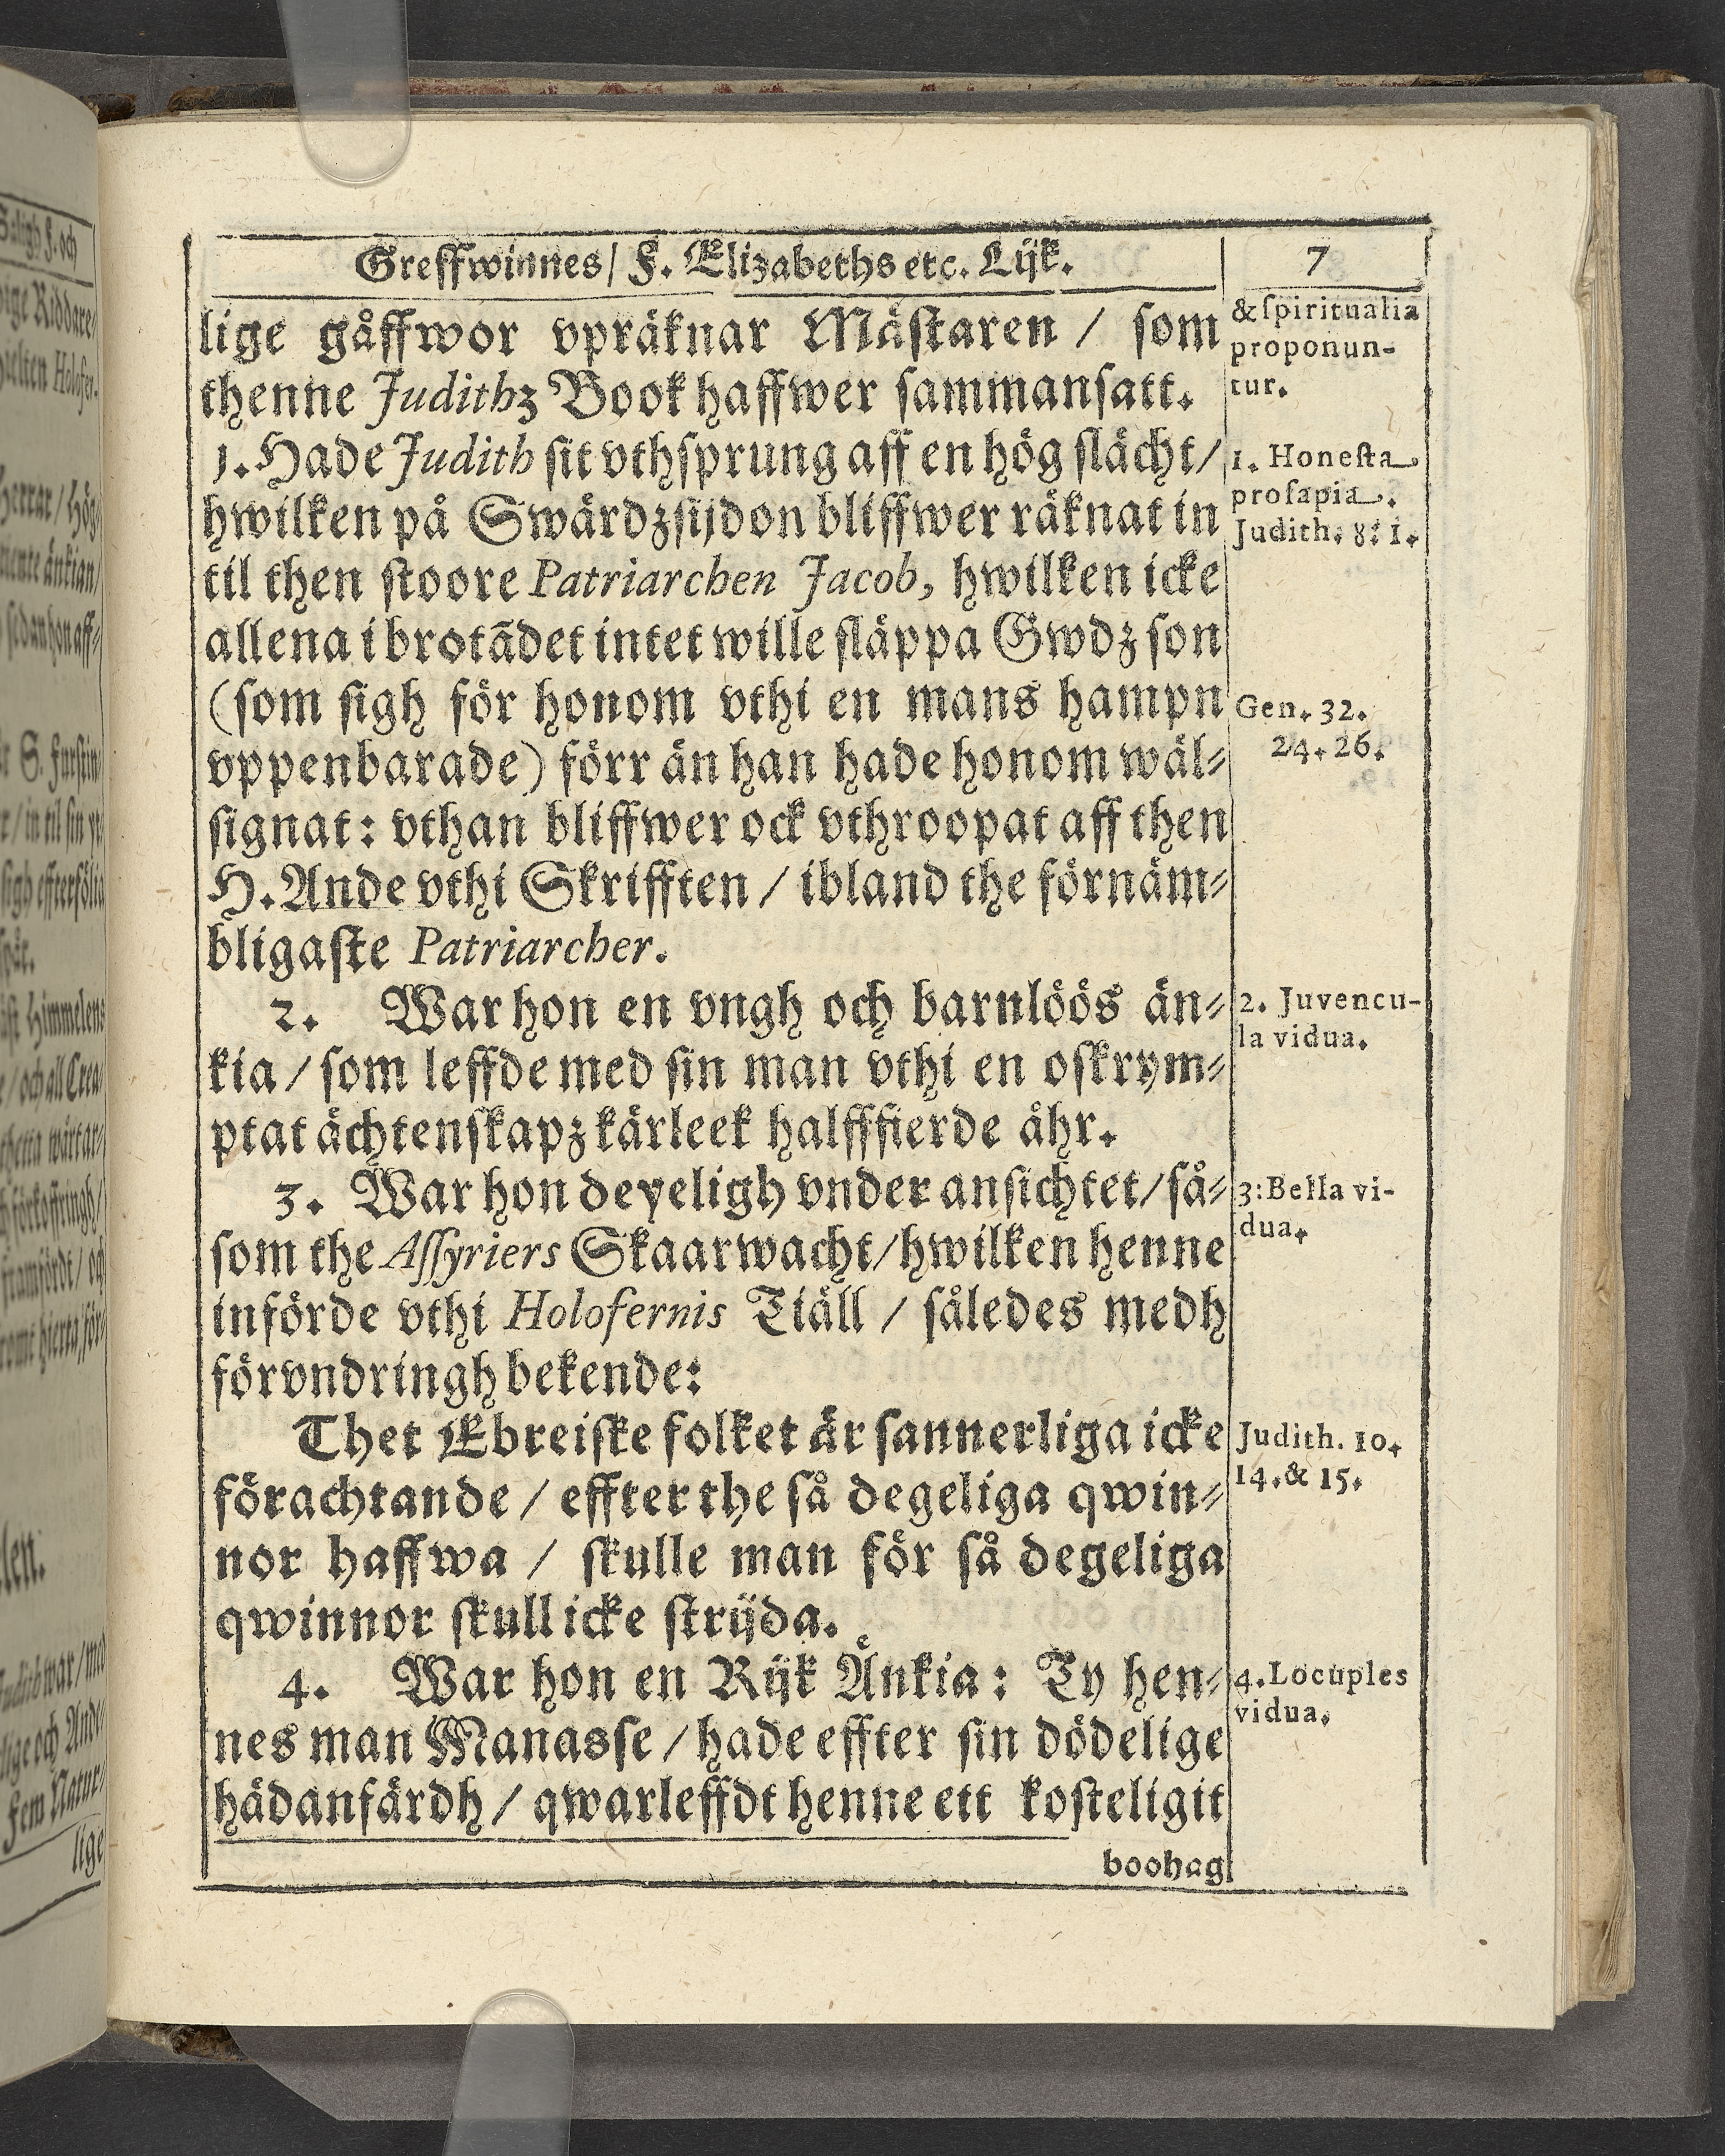 Greffwinnes/ F. Elizabeths etc. Lijk.
7
lige gåffwor vpräknar Mästaren / som
thenne Judithz Book haffwer sammansatt.
1. Hade Judith sit vthsprung aff en hög slächt/
hwilken på Swärdzsijdon bliffwer räknat in
til then stoore Patriarchen Jacob, hwilken icke
allena i brotãdet intet wille släppa Gwdz son
(som sigh för honom vthi en mans hampn
vppenbarade) förr än han hade honom wäl-
signat: vthan bliffwer ock vthroopat aff then
H. Ande vthi Skrifften / ibland the förnäm-
bligaste Patriarcher.
2. War hon en vngh och barnlöös än-
kia / som leffde med sin man vthi en oskrym-
ptat ächtenskapz kärleek halfffierde åhr.
3. War hon deyeligh vnder ansichtet/ så-
som the Assyriers Skaarwacht/ hwilken henne
införde vthi Holofernis Tiäll / således medh
förvndringh bekende:
Thet Ebreiske folket är sannerliga icke
förachtande / effter the så degeliga qwin-
nor haffwa / skulle man för så degeliga
qwinnor skull icke strijda.
4. War hon en Rijk Änkia: Ty hen-
nes man Manasse / hade effter sin dödelige
hädanfärdh / qwarleffdt henne ett kosteligit
boohag
& spiritualia
proponun-
tur.
1. Honesta
prosapia.
Judith. 8: 1.
Gen. 32.
24. 26.
2. Juvencu-
la vidua.
3: Bella vi-
dua.
Judith. 10.
14. & 15.
4. Locuples
vidua.